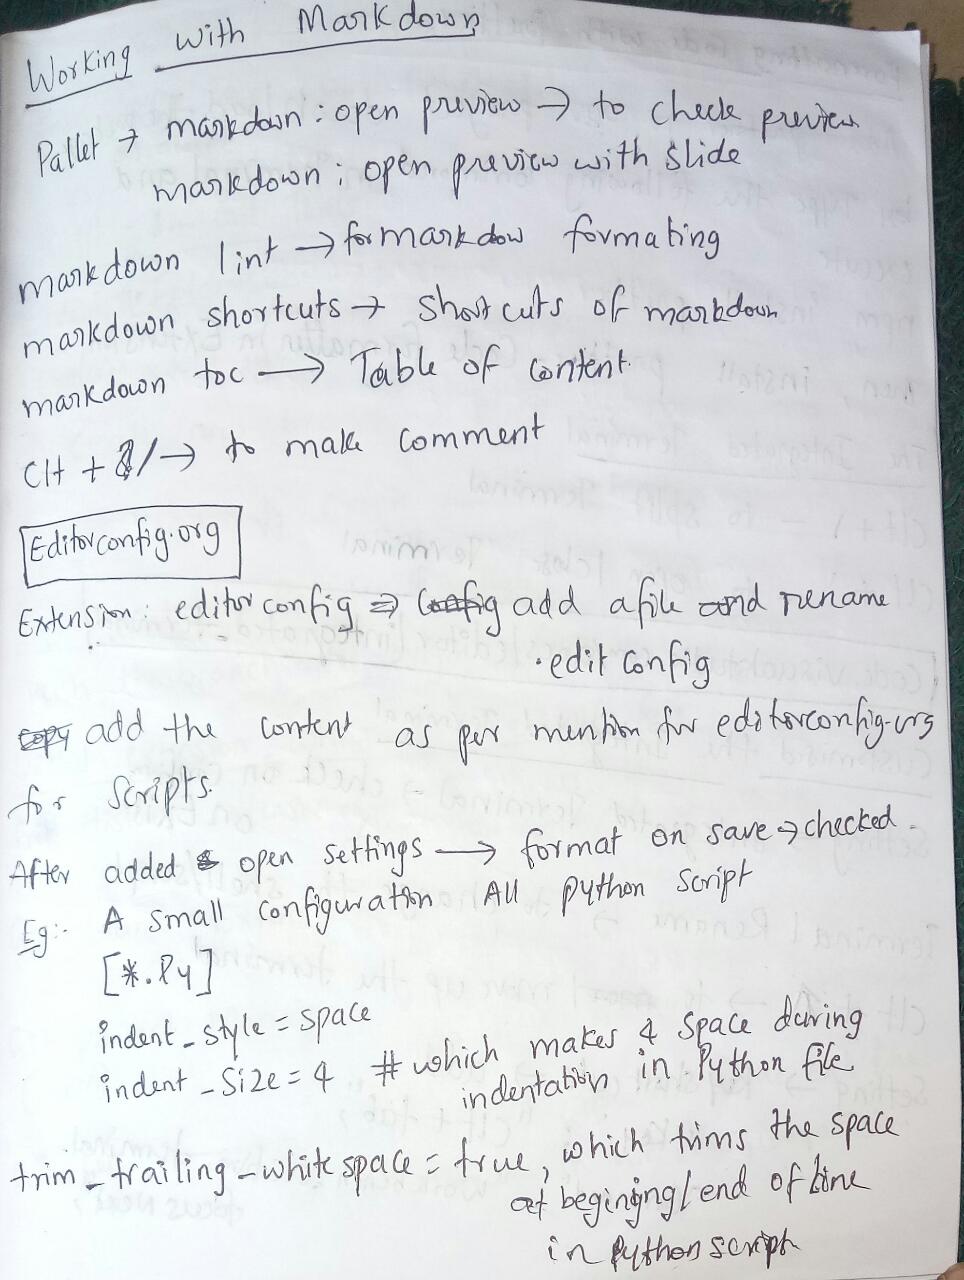 Working with Markdown
Pallet → markdown : open preview → to check preview
markdown : open preview with slide
markdown lint → for markdow formating
markdown shortcuts → Short cuts of markdown
markdown toc → Table of content.
Clt + / → to make comment
Editorconfig.org
Extension : editor config ⇒ add a file and rename
.edit config
add the content as per mention for editorconfig.org
for Scripts.
After added open settings → format on save → checked.
Eg:- A small configuration All python script
[*.Py]
indent_style = space
indent_Size = 4 # which makes 4 space during
indentation in Python file
trim_trailing_white space = true, which trims the space
at begining/end of line
in Python script